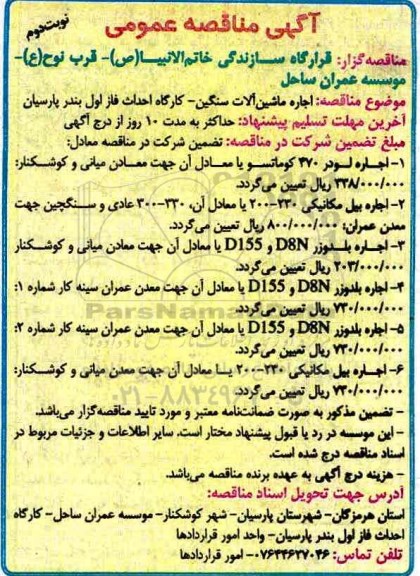 آگهی مناقصه عمومی
نوبت دوم
مناقصه‌گزار: قرارگاه سازندگی خاتم‌الانبیا(ص)- قرب نوح(ع)-
موسسه عمران ساحل
موضوع مناقصه: اجاره ماشین‌آلات سنگین- کارگاه احداث فاز اول بندر پارسیان
آخرین مهلت تسلیم پیشنهاد: حداکثر به مدت ۱۰ روز از درج آگهی
مبلغ تضمین شرکت در مناقصه: تضمین شرکت در مناقصه معادل:
۱- اجاره لودر ۴۷۰ کوماتسو یا معادل آن جهت معادن میانی و کوشکنار:
۳۳۸/۰۰۰/۰۰۰ ریال تعیین می‌گردد.
۲- اجاره بیل مکانیکی ۲۳۰-۲۰۰ یا معادل آن، ۳۳۰-۳۰۰ عادی و سنگچین جهت
معدن عمران: ۸۰۰/۰۰۰/۰۰۰ ریال تعیین می‌گردد.
۳- اجاره بلدوزر D8N و D155 یا معادل آن جهت معادن میانی و کوشکنار
۲۰۳/۰۰۰/۰۰۰ ریال تعیین می‌گردد.
۴- اجاره بلدوزر D8N و D155 یا معادل آن جهت معدن عمران سینه کار شماره ۱:
۷۳۰/۰۰۰/۰۰۰ ریال تعیین می‌گردد.
۵- اجاره بلدوزر D8N و D155 یا معادل آن جهت معدن عمران سینه کار شماره ۲:
۷۳۰/۰۰۰/۰۰۰ ریال تعیین می‌گردد.
۶- اجاره بیل مکانیکی ۲۳۰-۲۰۰ یا معادل آن جهت معدن میانی و کوشکنار:
۷۳۰/۰۰۰/۰۰۰ ریال تعیین می‌گردد.
- تضمین مذکور به صورت ضمانت‌نامه معتبر و مورد تایید مناقصه‌گزار می‌باشد.
- این موسسه در رد یا قبول پیشنهاد مختار است. سایر اطلاعات و جزئیات مربوط در
اسناد مناقصه درج شده است.
- هزینه درج آگهی به عهده برنده مناقصه می‌باشد.
آدرس جهت تحویل اسناد مناقصه:
استان هرمزگان- شهرستان پارسیان- شهر کوشکنار- موسسه عمران ساحل- کارگاه
احداث فاز اول بندر پارسیان- واحد امور قراردادها
تلفن تماس: ۰۷۶۴۴۶۲۷۰۴۶- امور قراردادها